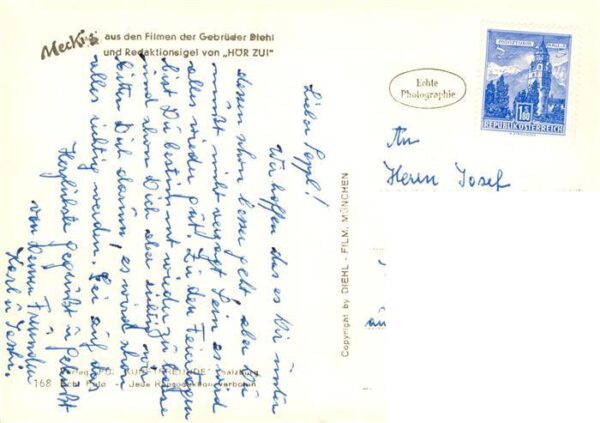 Mecki aus den Filmen der Gebrüder Diehl
und Redaktionsigel von „HÖR ZU!"
Echte
Photographie
1.80
REPUBLIK ÖSTERREICH
An
Herrn Josef
Lieber Peppl!
Wir hoffen das es Dir unter
dessen schon besser geht, aber Du
mußt nicht verzagt sein es wird
alles wieder gut. Zu den Feiertagen
bist Du bestimmt wieder zu Hause
nur Dich aber ruhig wir
bitten Dich darum, es wird schon
alles richtig werden. Sei auf das
Herzlichste gegrüßt u geküßt
von Deinen Freunden
Karl u
Copyright by DIEHL - FILM, MÜNCHEN
Verlag „KUNSTFREUNDE" Salzburg
168 Echt Foto - Jede Reproduktion verboten